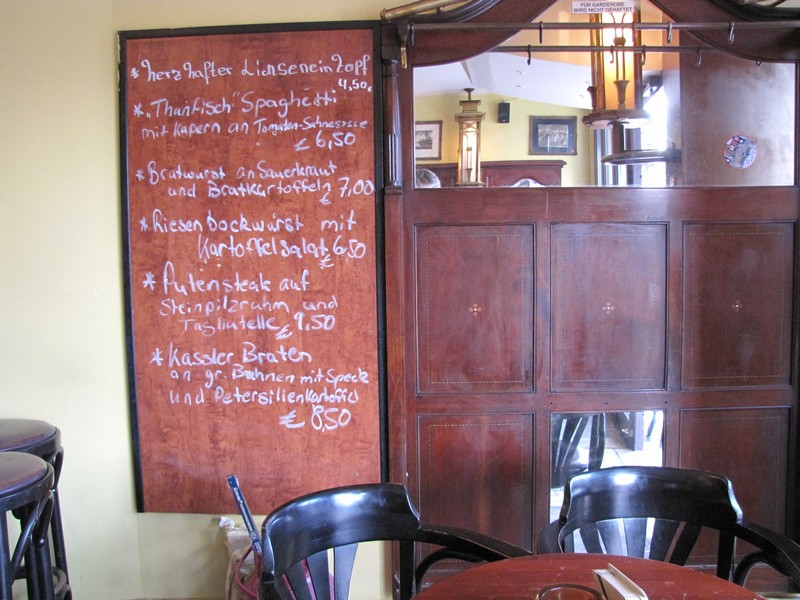 FÜR GARDEROBE
WIRD NICHT GEHAFTET
* herzhafter Linseneintopf
4,50€
* „Thunfisch" Spaghetti
mit Kapern an Tomaten-Sahnesosse
€ 6,50
* Bratwurst an Sauerkraut
und Bratkartoffeln 7,00
€
* Riesenbockwurst mit
Kartoffelsalat € 6,50
* Putensteak auf
Steinpilzrahm und
Tagliatelle € 9,50
* Kassler Braten
an gr. Bohnen mit Speck
und Petersilienkartoffel
€ 8,50